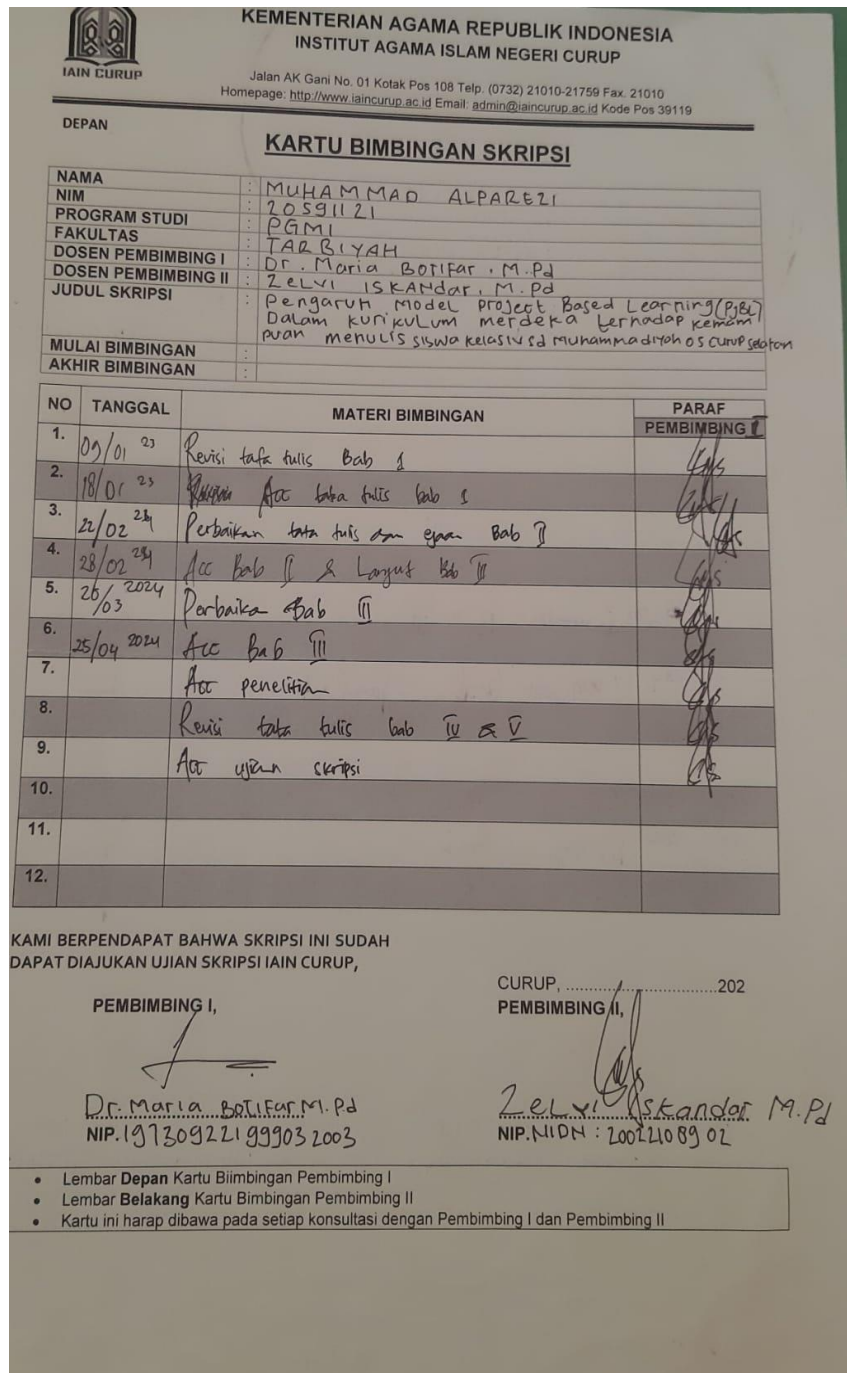 KEMENTERIAN AGAMA REPUBLIK INDONESIA
INSTITUT AGAMA ISLAM NEGERI CURUP
IAIN CURUP
Jalan AK Gani No. 01 Kotak Pos 108 Telp. (0732) 21010-21759 Fax. 21010
Homepage: http://www.iaincurup.ac.id Email: admin@iaincurup.ac.id Kode Pos 39119
DEPAN
KARTU BIMBINGAN SKRIPSI
NAMA : MUHAMMAD ALPAREZI
NIM : 20591121
PROGRAM STUDI : PGMI
FAKULTAS : TARBIYAH
DOSEN PEMBIMBING I : Dr. Maria BOTIFar, M.Pd
DOSEN PEMBIMBING II : ZELVI ISKANdar, M.Pd
JUDUL SKRIPSI : Pengaruh Model Project Based Learning (PjBL)
Dalam kurikulum merdeka terhadap kemam
puan menulis siswa kelas IV sd muhammadiyah 05 curup selatan
MULAI BIMBINGAN :
AKHIR BIMBINGAN :
NO TANGGAL MATERI BIMBINGAN PARAF
PEMBIMBING I
1. 09/01 23 Revisi tata tulis Bab 1
2. 18/01 23 Acc tata tulis bab 1
3. 22/02 24 Perbaikan tata tulis dan ejaan Bab II
4. 28/02 24 Acc Bab II & Lanjut Bab III
5. 26/03 2024 Perbaika Bab III
6. 25/04 2024 Acc Bab III
7. Acc penelitian
8. Revisi tata tulis bab IV & V
9. Acc ujian skripsi
10.
11.
12.
KAMI BERPENDAPAT BAHWA SKRIPSI INI SUDAH
DAPAT DIAJUKAN UJIAN SKRIPSI IAIN CURUP,
CURUP, ....................................202
PEMBIMBING I, PEMBIMBING II,
Dr. Maria BOTIFar M.Pd Zelvi Iskandar M.Pd
NIP. 197309221999032003 NIP. NIDN : 20022108902
• Lembar Depan Kartu Biimbingan Pembimbing I
• Lembar Belakang Kartu Bimbingan Pembimbing II
• Kartu ini harap dibawa pada setiap konsultasi dengan Pembimbing I dan Pembimbing II